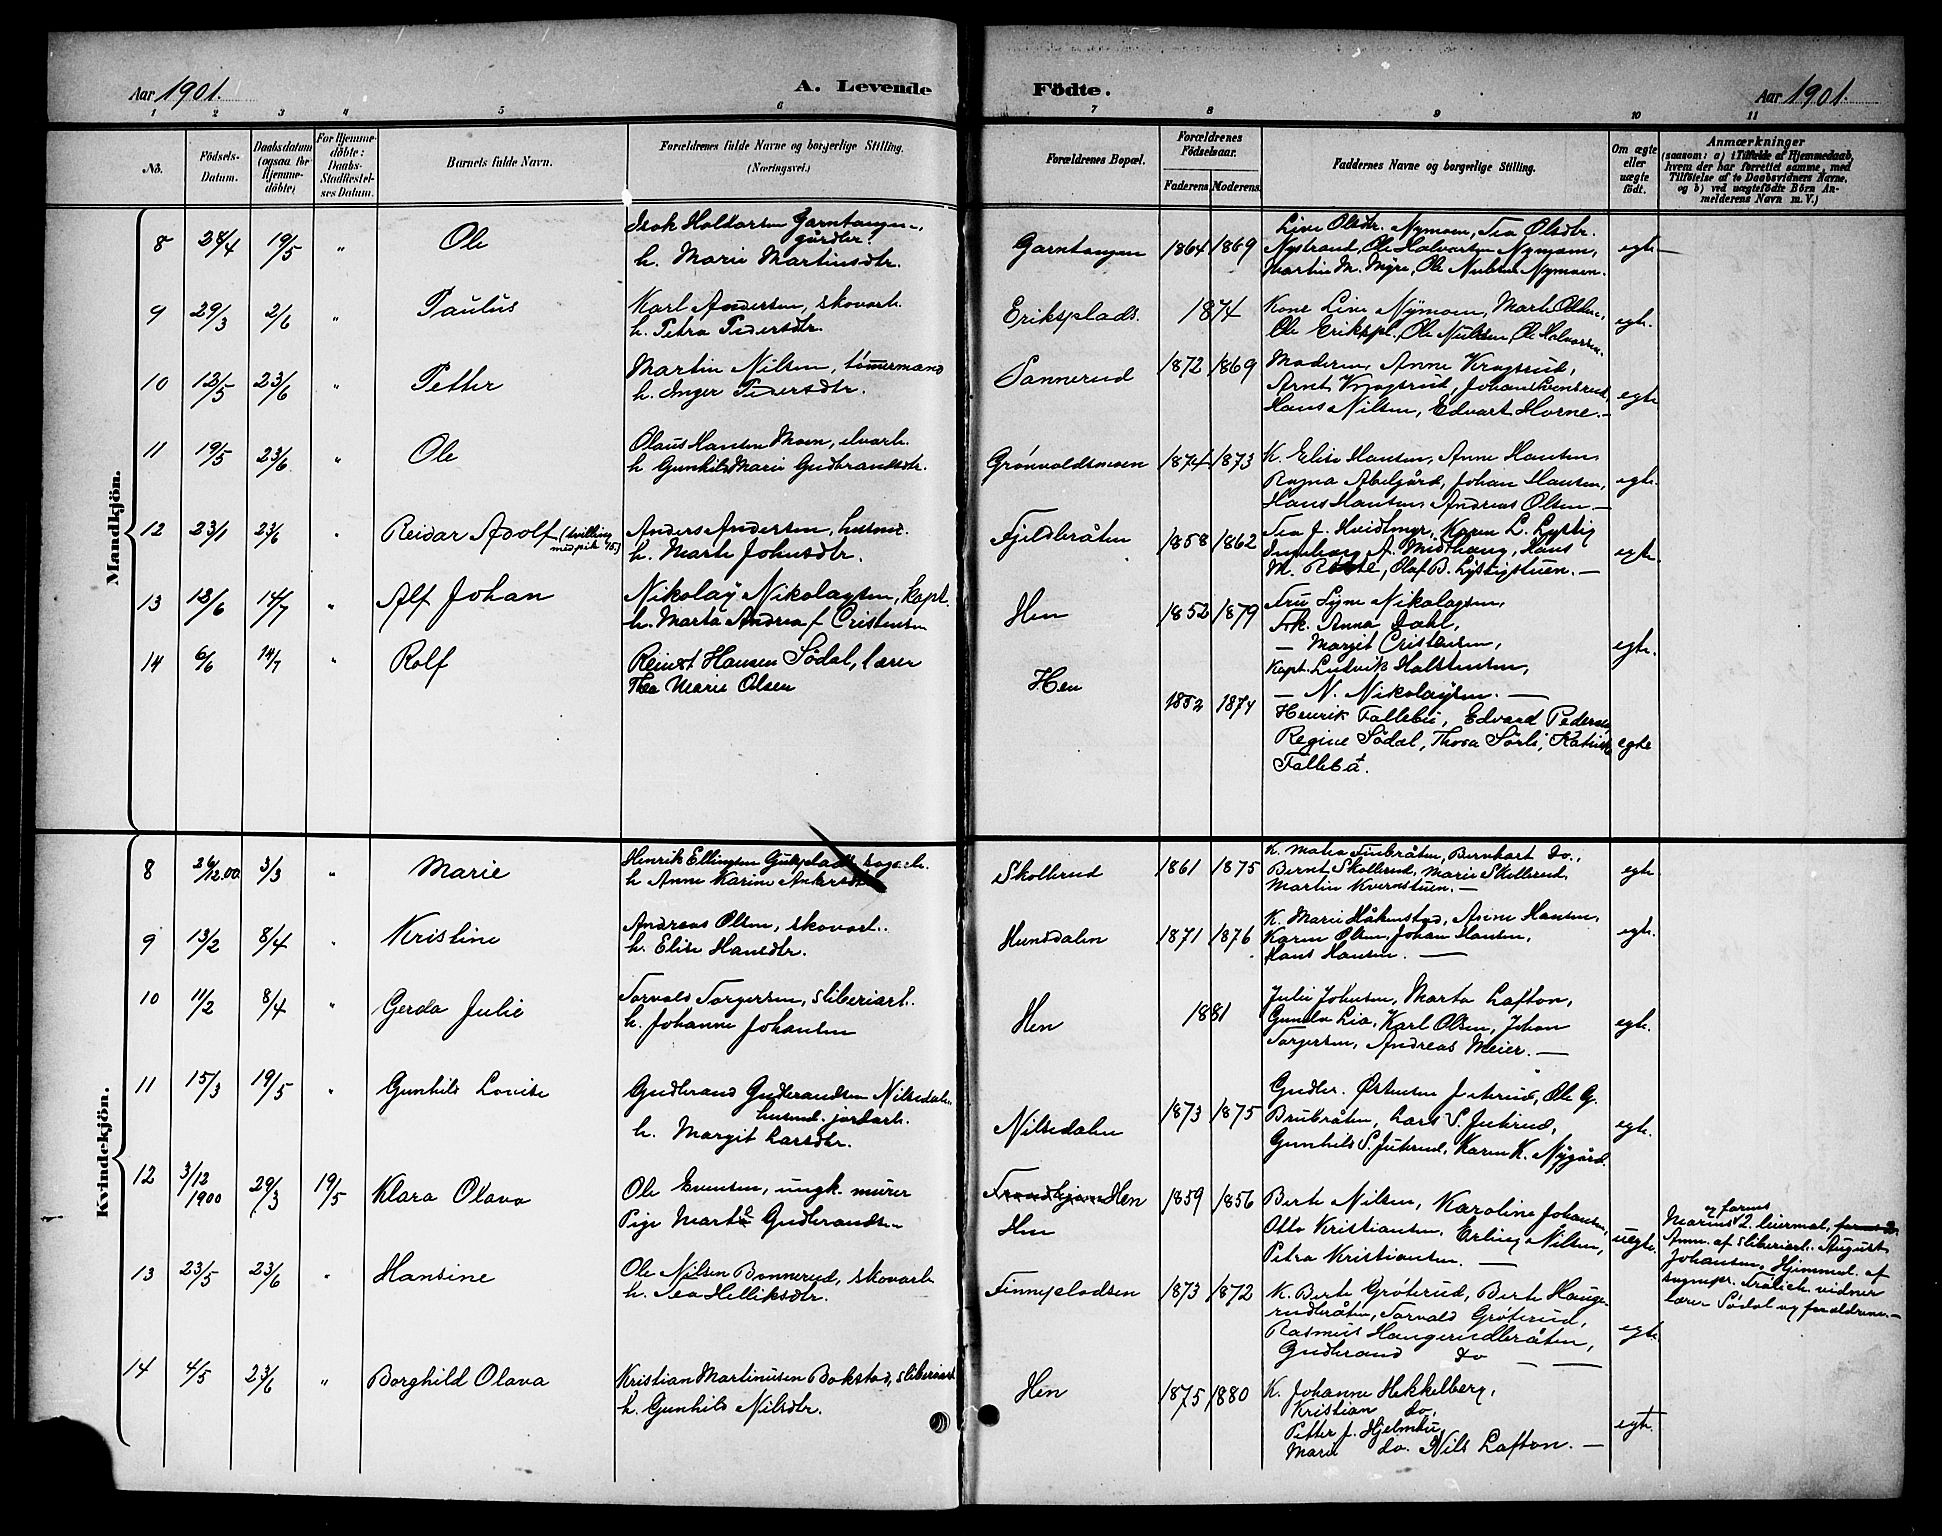 Aar 1901. A. Levende Födte. Aar 1901.
1 2 3 4 5 6 7 8 9 10 11
No.
Födsels-Datum.
Daabsdatum (ogsaa for Hjemme-döbte)
For Hjemme-döbte: Daabs-Stadfestel-ses Datum.
Barnets fulde Navn.
Forældrenes fulde Navne og borgerlige Stilling.
(Næringsvei.)
Forældrenes Bopæl.
Forældrenes Födselsaar.
Faderens. Moderens.
Faddernes Navne og borgerlige Stilling.
Om ægte eller uægte födt.
Anmærkninger
(saasom: a) i Tilfælde af Hjemmedaab,
hvem der har forrettet samme, med
Tilföielse af to Daabsvidners Navne,
og b) ved uægtefödte Börn An-
melderens Navn m. V.)
Mandkjön.
8 24/4 19/5 " Ole
Isak Haldorsen Garntangen, gårdbr.
h. Marie Martinsdtr.
Garntangen 1864 1869
Live Olsdtr. Nymoen, Tea Olsdtr.
Nystrand, Ole Halvorsen Nymoen,
Martin M. Myre, Ole Nielsen Nymoen.
egte
9 29/3 2/6 " Paulus
Karl Andersen, skovarb.
h. Petra Pedersdtr.
Eriksplads. 1874
Kone Live Nymoen, Marte Olsen,
Ole Erikspl., Ole Nielsen, Ole Halvorsen.
egte.
10 12/5 23/6 " Petter
Martin Nilsen, tømmermand
h. Inger Pedersdtr.
Sannerud 1872 1869
Moderen, Anne Kragsrud,
Arnt Kragsrud, Johan Svensrud,
Hans Nilsen, Edvart Horne.
egte.
11 19/5 23/6 " Ole
Olaus Hansen Moen, elvarb.
h Gunhild Marie Gudbrandsdtr.
Grønvoldsmoen 1874 1873
K. Elise Hansen, Anne Hansen
Ragna Abelgård, Johan Hansen,
Hans Hansen, Andreas Olsen.
egte.
12 23/1 23/6 " Reidar Adolf (tvilling med pik 4/5)
Anders Andersen, husmd.
h. Marte Johnsdtr.
Fjeldbråten 1858 1862
Tea J. Hvidtmyr, Karen L. Lystig
Ingeborg A. Midthaug, Hans
M. Roste, Olaf B. Lystigstuen.
egte.
13 13/6 14/7 " Alf Johan
Nikolay Nikolaysen, kapt.
h. Marta Andrea f Cristensen
Hen 1852 1879
Fru Lyne Nikolaysen,
Frk. Anna Dahl,
— Margit Cristensen,
Kapt. Ludvik Halstensen,
— N. Nikolaysen. —
egte.
14 6/6 14/7 " Rolf
Reinert Hansen Södal, lærer
Thea Marie Olsen
Hen 1852 1874
Henrik Follebu, Edvard Pedersen,
Regine Södal, Thora Sörli,
egte
Kvindekjön.
8 26/12.00 3/3 " Marie
Henrik Ellingsen
h Anne Karine Andersdtr
Skollerud 1861 1875
K. Matea Finbråten, Bernhart do.,
Bernt Skollerud, Marie Skollerud,
Martin Kvernstuen. —
egte.
9 13/2 8/4 " Kristine
Andreas Olsen, skovarb.
h. Elise Hansdtr.
Hunsdalen 1871 1876
K. Marie Håkenstad, Anne Hansen,
Karen Olsen, Johan Hansen,
Hans Hansen. —
egte.
10 11/2 8/4 " Gerda Julie
Torvald Torgersen, sliberiarb.
h. Johanne Johansen
Hen 1881
Julie Johnsen, Marta Lafton,
Gunda Lia, Karl Olsen, Johan
Torgersen, Andreas Meier. —
egte.
11 15/3 19/5 " Gunhild Lovise
Gudbrand Gudbrandsen Nilsedalen
husmd. jordarb.
h. Margit Larsdtr.
Nilsedalen 1873 1875
Gudbr. Østensen Juterud, Ole G.
Brubråten, Lars S. Juterud,
Gunhild S. Juterud, Karen K. Nygård.
egte.
12 3/12 1900 29/3 19/5 Klara Olava
Ole Evensen, ungk. murer
Pige Marte Gudbrandsen
Trondhjem Hen
Hen
1859 1856
Berte Nilsen, Karoline Johansen,
Otto Kristiansen, Erling Nilsen,
Petra Kristiansen. —
uegte.
og farens
Marens 2. leiermal,
Anm. af sliberiarb. August
Johansen. Hjemmed. af
sognepr. Frölich. vidner
lærer Södal og forældrene.—
13 23/5 23/6 " Hansine
Ole Nilsen Bonnerud, skovarb
h. Tea Helliksdtr.
Finnepladsen 1873 1872
K. Berte Grøterud, Berte Hauge-
rudbråten, Torvald Grøterud,
Rasmus Haugerudbråten,
Gudbrand do — —
egte
14 4/5 23/6 " Borghild Olava
Kristian Martinusen Bakstad, sliberiarb
h. Gunhild Nilsdtr.
Hen 1875 1880
K. Johanne Hekkelberg,
Kristian do,
Petter J. Hjelmbu,
Marie do. Nils Lafton. —
egte.